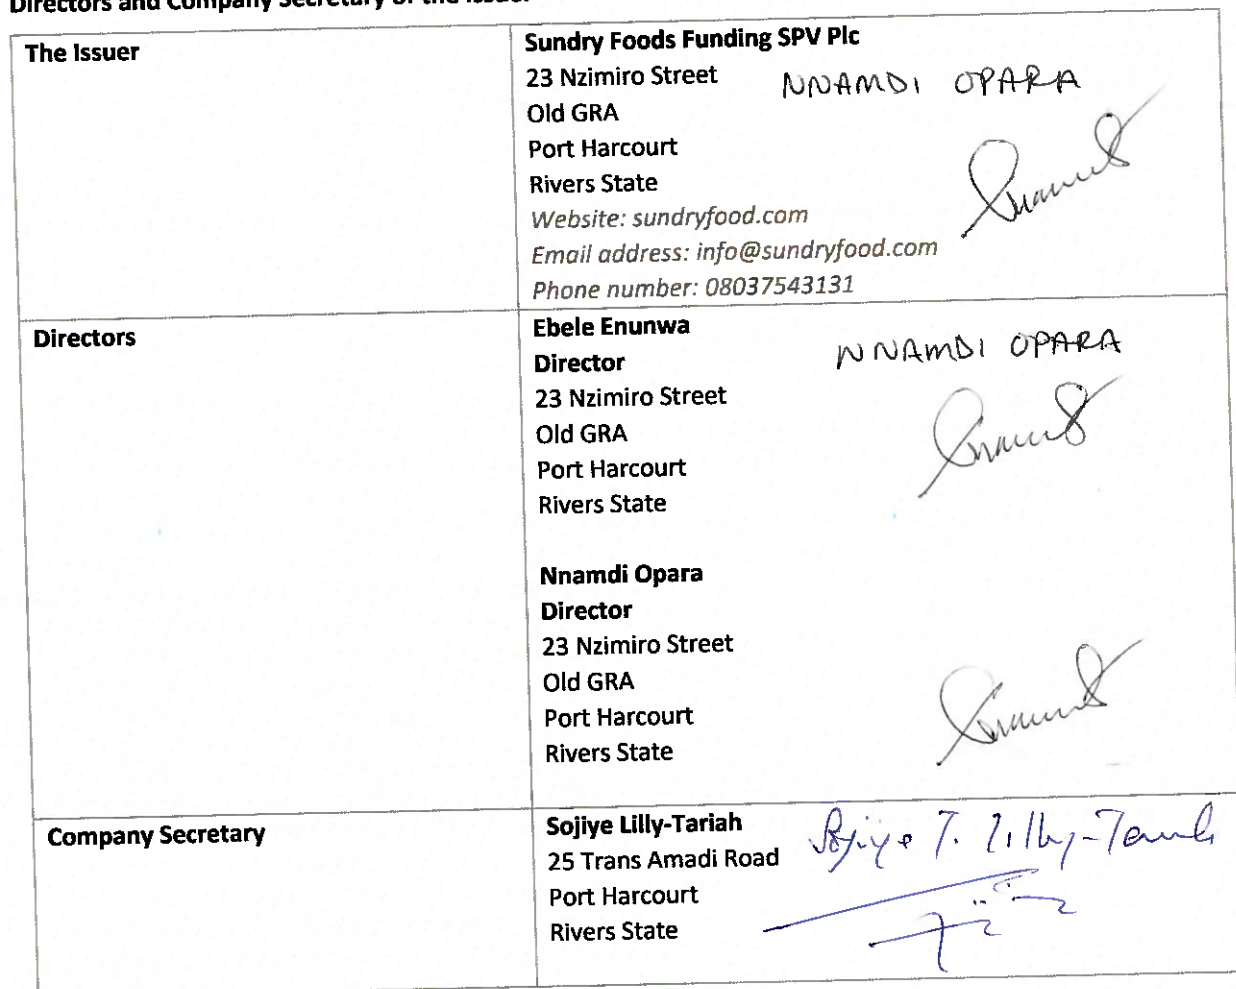 Directors and Company Secretary of the Issuer
The Issuer
Sundry Foods Funding SPV Plc
23 Nzimiro Street
NNAMDI OPARA
Old GRA
Port Harcourt
Rivers State
Website: sundryfood.com
Email address: info@sundryfood.com
Phone number: 08037543131
Directors
Ebele Enunwa
NNAMDI OPARA
Director
23 Nzimiro Street
Old GRA
Port Harcourt
Rivers State
Nnamdi Opara
Director
23 Nzimiro Street
Old GRA
Port Harcourt
Rivers State
Company Secretary
Sojiye Lilly-Tariah
Sojiye T. Lilly-Tariah
25 Trans Amadi Road
Port Harcourt
Rivers State